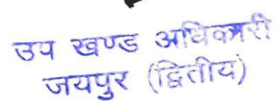 उप खण्ड अधिकारी
जयपुर (द्वितीय)